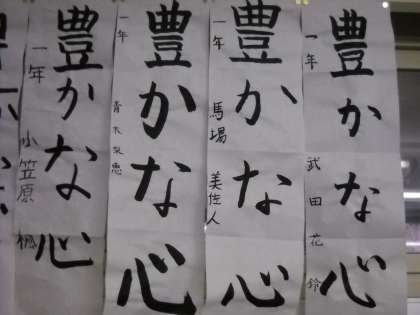 豊かな心
一年 武田花鈴
豊かな心
一年 馬場美佐人
豊かな心
一年 青木
豊かな心
一年 小笠原楓